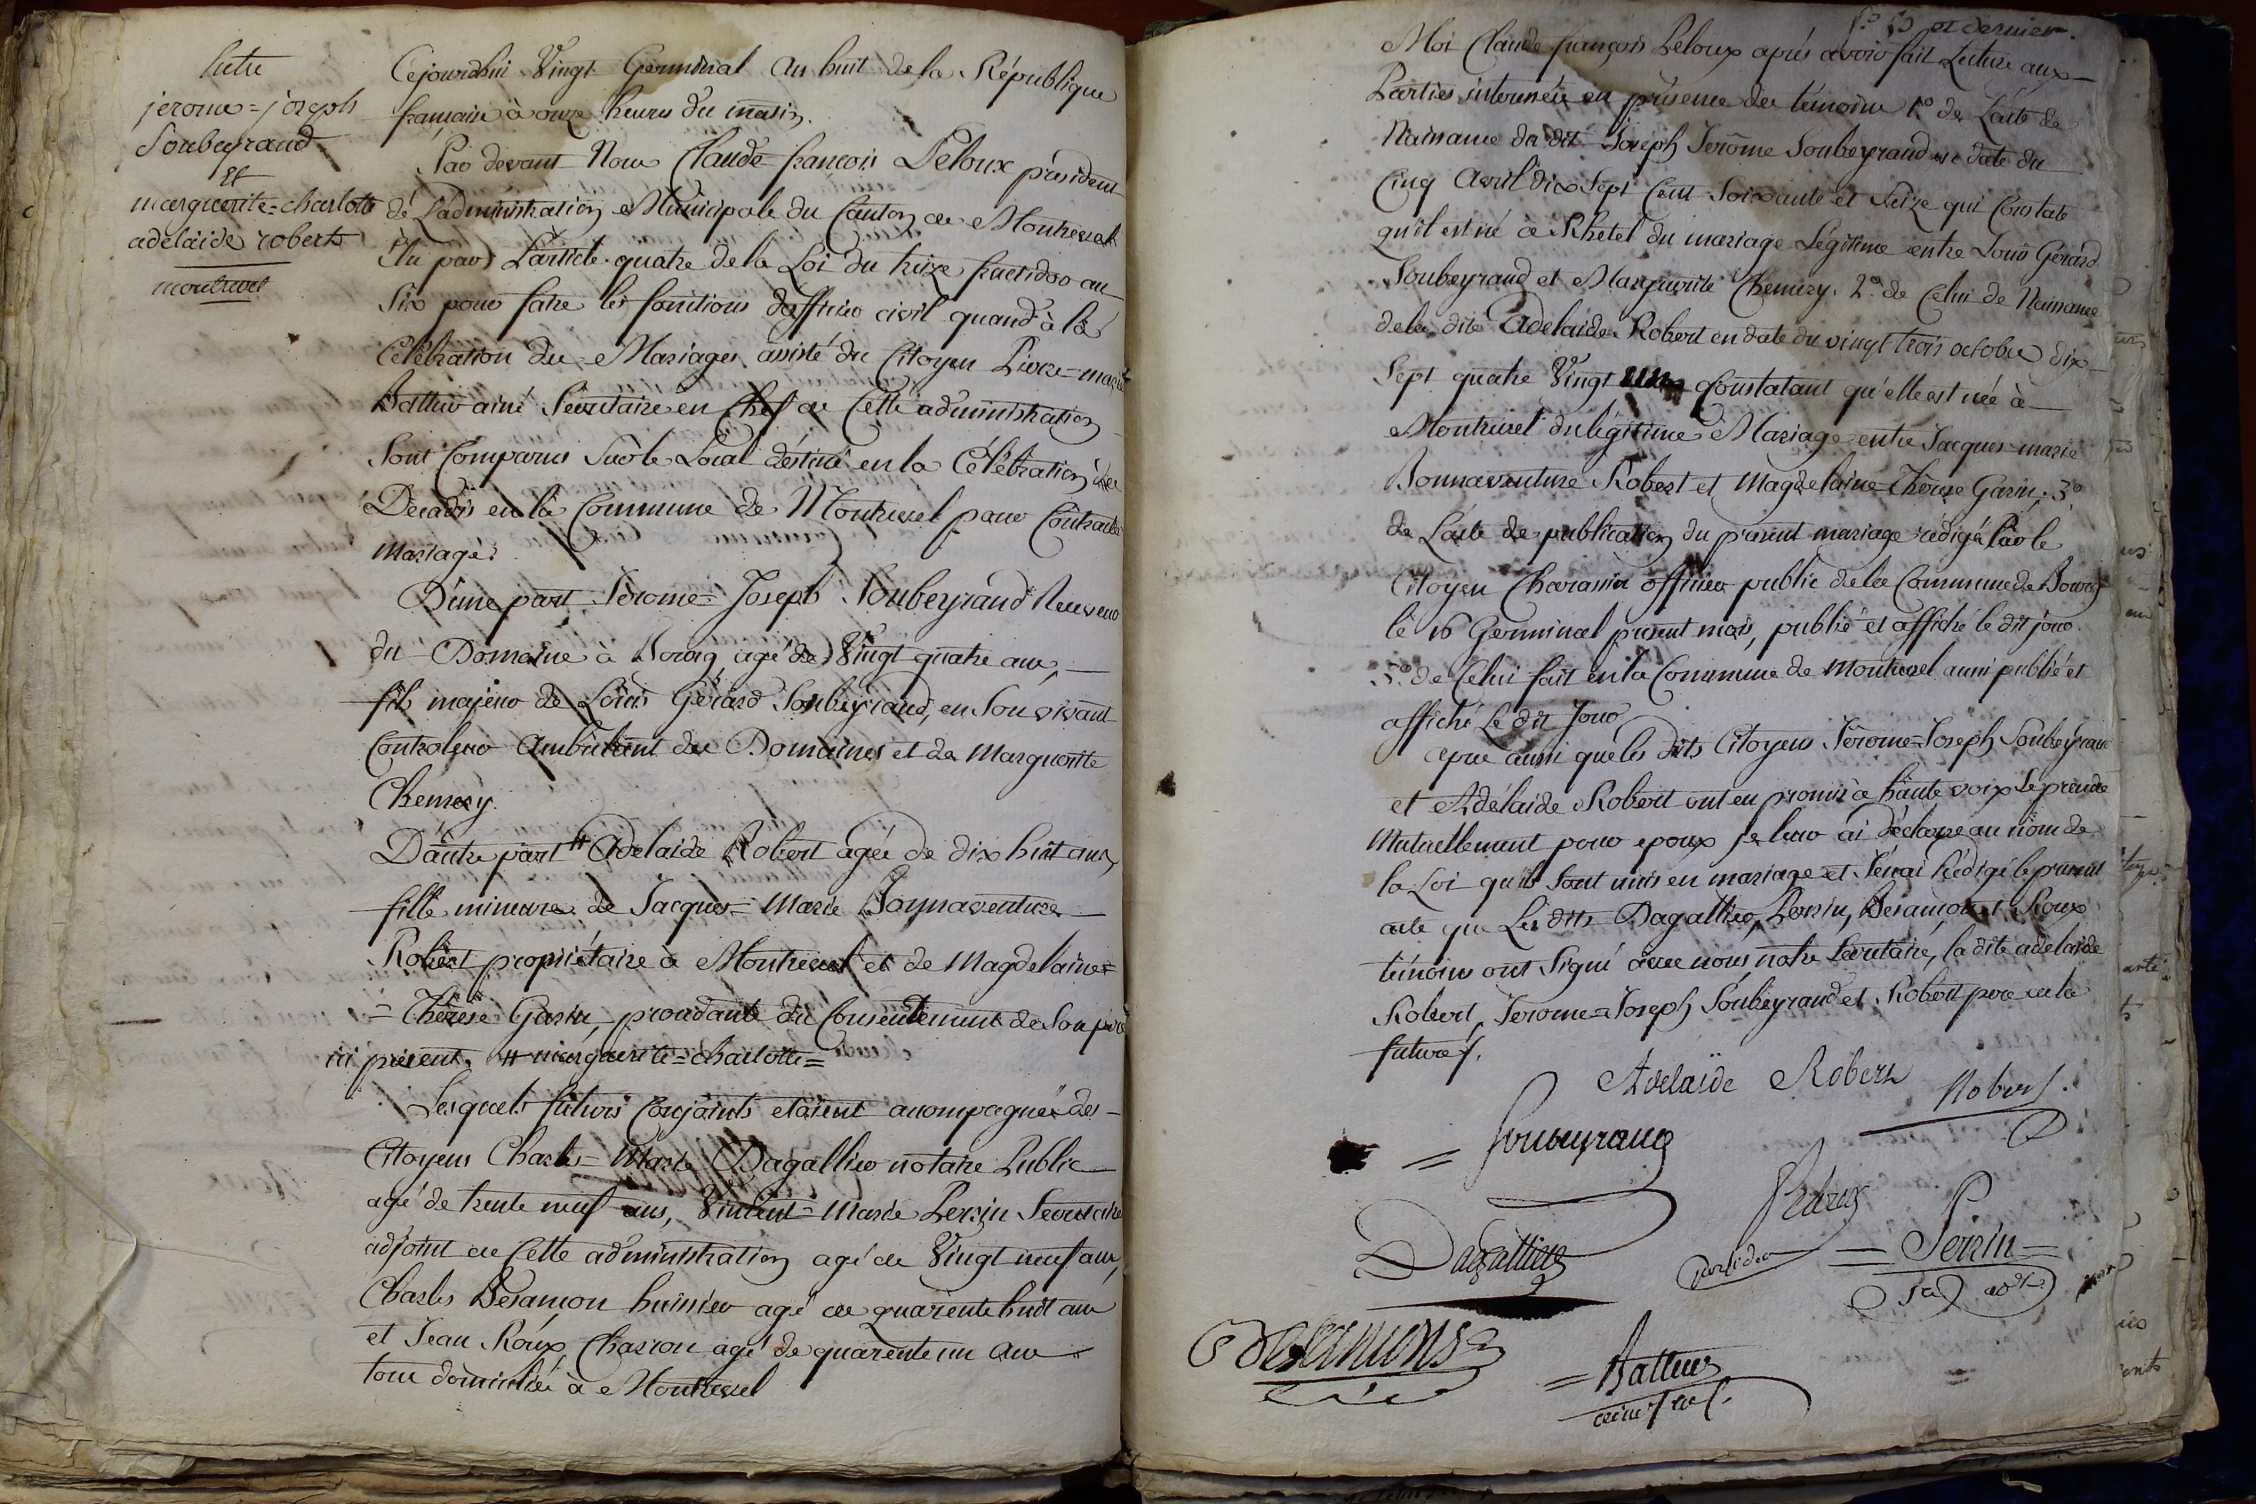 Entre
jerome=joseph
Soubeyrand
Et
marguerite=charlotte
adelaïde robert
montrevel
Cejourdhui Vingt Germinal An huit de la République
française à onze heures du matin.
Par devant Nous Claude françois Peloux président
de L'administration Municipale du Canton de Montrevel
Elu par L'article quatre de la Loi du treize fructidor an
Six pour faire les fonctions d'officier civil quand à la
Célébration des Mariages assisté du Citoyen Pierre=marie
Batteur ainé Secrétaire en Chef de Cette administration
Sont Comparus Sur le Local déstiné en la Célébration des
Décadis en la Commune de Montrevel pour Contracter
Mariage.
D'une part Jérome=Joseph Soubeyrand Receveur
du Domaine à Bourg agé de Vingt quatre ans,
fils majeur de Louis Gérard Soubeyrand, en Son vivant
Controleur Ambulant des Domaines et de Marguerite
Chemery.
D'autre part # Adelaide Robert agée de dix huit ans,
fille mineure de Jacques=Marie Bonnaventure
Robert propriétaire à Montrevel et de Magdelaine=
=Thérèse Garin, procédante du Consentement de Son père
ici présent. # marguerite=charlotte=
Lesquels futurs Conjoints etaient accompagnés des
Citoyens Charles=Marie Dagallier notaire Public
agé de trente neuf ans, Vincent=Marie Perrin Secretaire
adjoint de Cette administration agé de Vingt neuf ans,
Charles Besançon huissier agé de quarente huit ans
et Jean Roux Charron agé de quarente un ans
tous domiciliés à Montrevel
f.º et dernier.
Moi Claude françois Peloux après avoir fait Lecture aux
Parties intéressées en présence des témoins 1º de L'acte de
Naissance du dit Joseph Jérôme Soubeyrand en date du
Cinq Avril dix Sept Cent Soixante et Seize qui Constate
qu'il est né à Rhetel du mariage Légitime entre Louis Gérard
Soubeyrand et Marguerite Chemery. 2º de Celui de Naissance
de la dite Adelaide Robert en date du vingt trois octobre dix
Sept quatre Vingt un Constatant qu'elle est née à
Montrevel du légitime Mariage entre Jacques=marie
Bonnaventure Robert et Magdelaine=Thérèse Garin. 3º
de L'acte de publication du présent mariage rédigé Par le
Citoyen Charassin officier public de la Commune de Bourg
le 16 Germinal présent mois, publié et affiché le dit jour.
de Celui fait en la Commune de Montrevel aussi publié et
affiché Le dit Jour
après aussi que les dits Citoyens Jérome=Joseph Soubeyrand
et Adélaide Robert ont eu promis à haute voix Se prendre
Mutuellement pour epoux Je leur ai déclaré au nom de
la Loi qu'ils Sont unis en mariage et J'en ai Rédigé le présent
acte que Les dits Dagallier, Perrin, Besançon et Roux
témoins ont Signé avec nous, notre Secrétaire, la dite adelaide
Robert, Jerome=Joseph Soubeyrand et Robert père de la
future.
Adelaïde Robert
Robert
Soubeyrand
Dagallier
Perrin
Besançons
Batteur